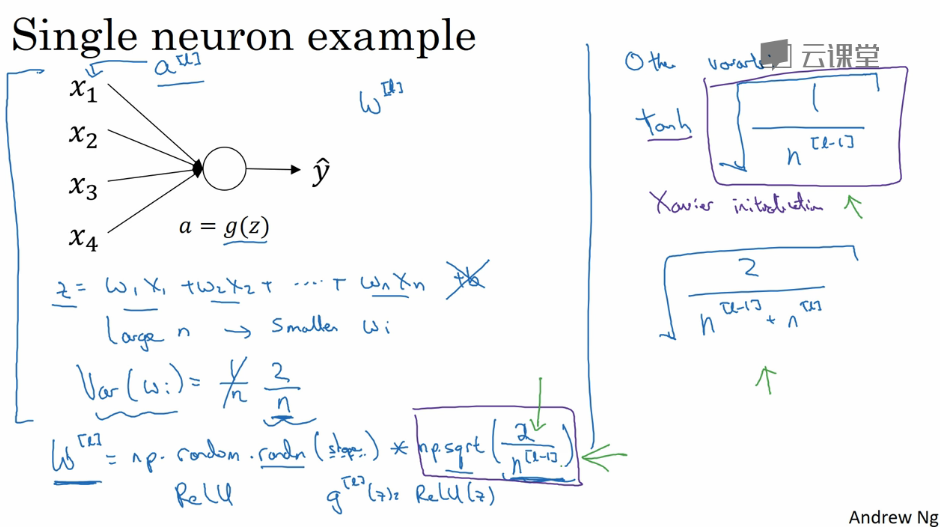 Single neuron example
x₁
x₂
x₃
x₄
a^[l]
w^[l]
ŷ
a = g(z)
z = w₁x₁ + w₂x₂ + ····· + wₙxₙ +b
Large n → Smaller wᵢ
Var(wᵢ) = 1/n 2/n
W^[l] = np.random.randn(shape) * np.sqrt(2/n^[l-1])
ReLU g^[l](z) = ReLU(z)
Other
云课堂
tanh √(1/n^[l-1])
Xavier initialization
√(2/(n^[l-1] + n^[l]))
Andrew Ng